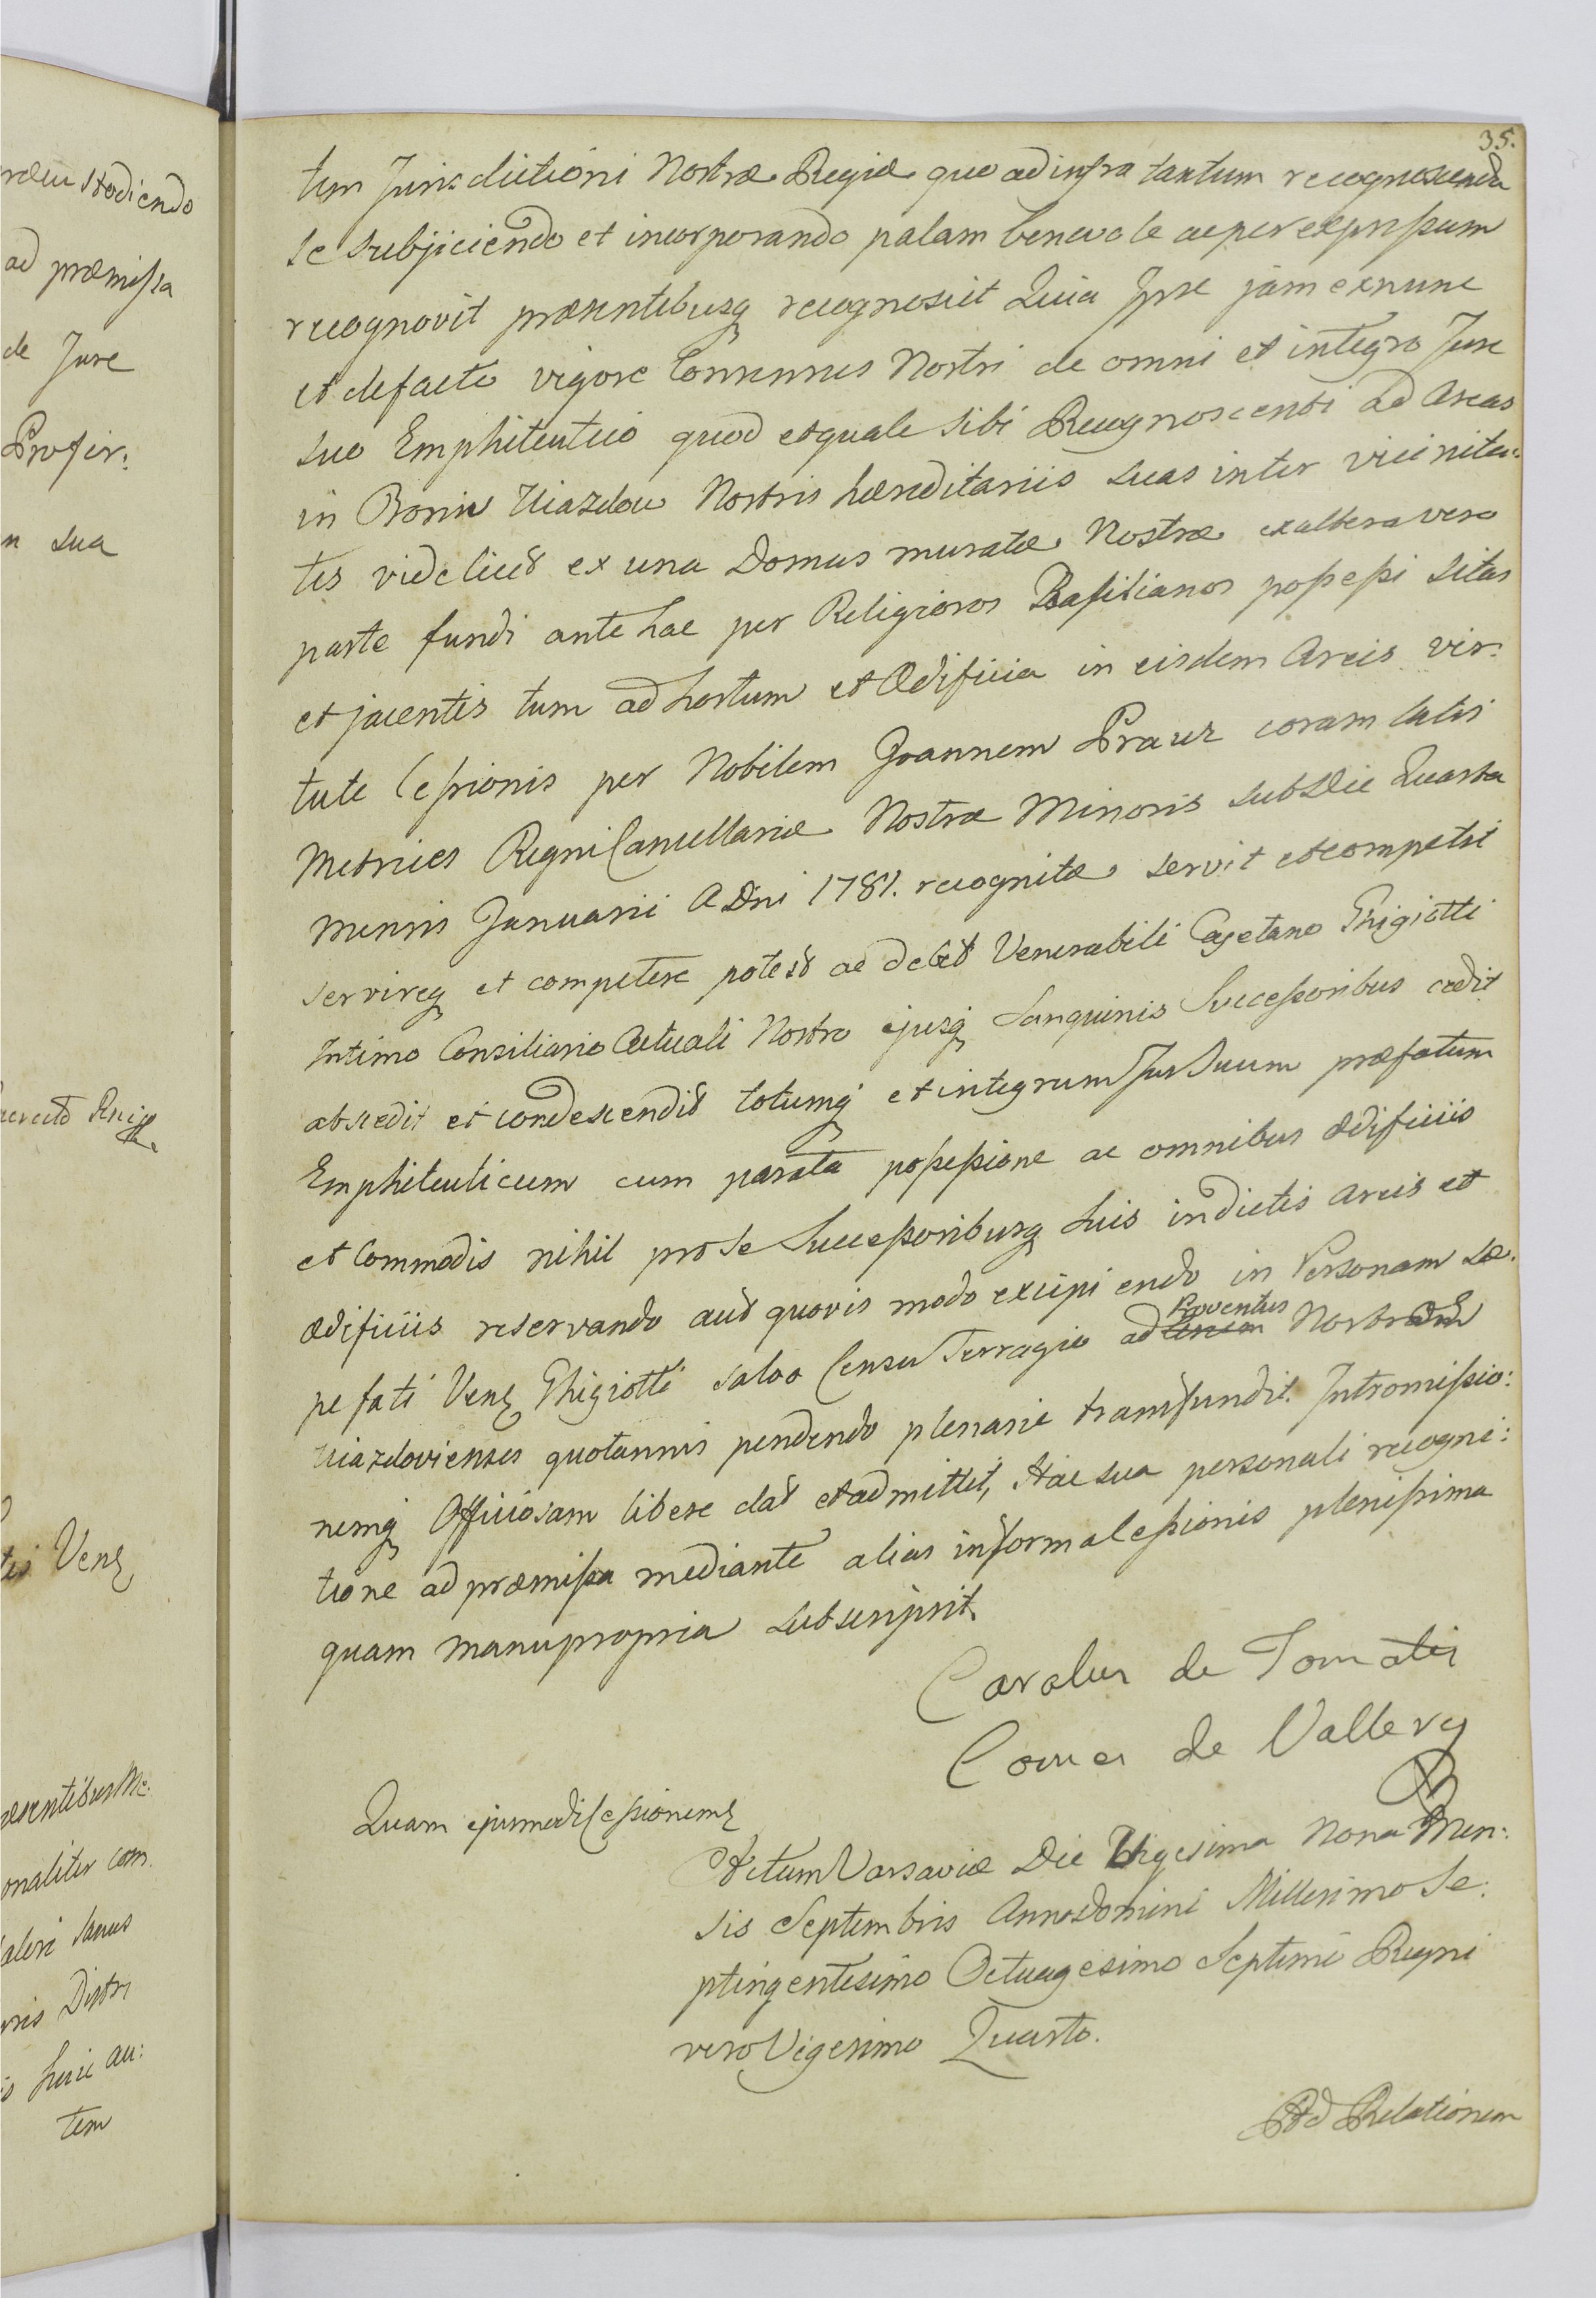 ræcu stodiendo
ad præmissa
de Jure
Profir:
n sua
ti Venȩ
æsentibus Me:
onaliter com
aleri sanus
ris Distri
s huic au:
tem
35.
tem Jurisdictioni Nostræ Regiæ quo ad infra tantum recognoscenda
se subjiciendo et incorporando palam benevole ac per expressum
recognovit præsentibusq recognoscit Quia Ipse jam ex nunc
et de facto vigore Consensus Nostri de omni et integro Jure
suo Emphiteutico quod et quale sibi Recognoscenti ad Areas
in Bonis Uiazdow Nostris hæreditariis suas inter vicinita:
tes videlicet ex una Domus muratæ Nostræ ex altera vero
parte fundi ante hac per Religiosos Basilianos possessi sitas
et jacentes tum ad hortum et Ædificia in eisdem Areis vir:
tute Cessionis per Nobilem Joannem Prauz coram Actis
Metrices Regni Cancellariæ Nostræ Minoris sub Die Quarta
Mensis Januarii A Dni 1781. recognitæ servit et competit
servireq et competere potest ac debet Venerabili Cajetano Ghigiotti
Intimo Consiliario Actuali Nostro ejusq Sanquinis Successoribus cedit
abscedit et condescendit totumq et integrum Jus Suum præfatum
Emphiteuticum cum parata possessione ac omnibus ædificiis
et Commodis nihil pro se Successoribusq suis in dictis Areis et
ædificiis reservando aut quovis modo excipiendo in Personam sæ:
pe fati Venȩ Ghigiotti salvo Censu Terragio ad Proventus Nostros
Uiazdovienses quotannis pendendo plenarie transfundit. Intromissio:
nemq Officiosam libere dat et admittit, Hac sua personali recogni:
tione ad præmissa mediante alias in forma Cessionis plenissima
quam manu propria subscripsit.
Carolus de Tomatis
Comes de Vallery
Quam ejusmodi Cessionemȩ
Actum Varsaviæ Die Vigesima Nona Men:
sis Septembris Anno Domini Millesimo Se:
ptingentesimo Octuagesimo Septimo Regni
vero Vigesimo Quarto.
Ad Relationem